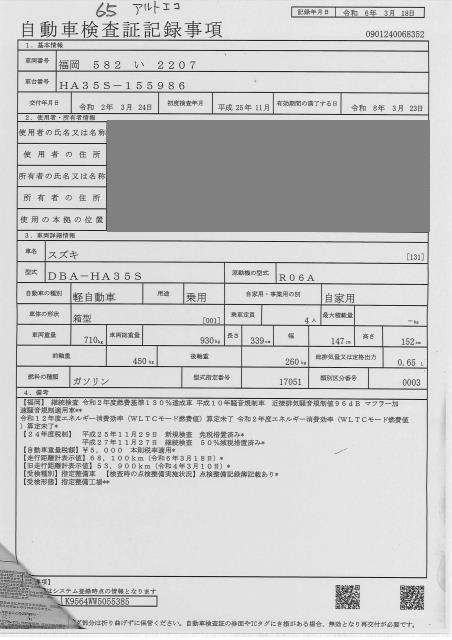 65 アルトエコ
記録年月日 令和 6年 3月 18日
自動車検査証記録事項
0901240068352
1. 基本情報
車両番号 福岡 582 い 2207
車台番号 HA35S-155986
交付年月日 令和 2年 3月 24日 初度検査年月 平成 25年 11月 有効期間の満了する日 令和 8年 3月 23日
2. 使用者・所有者情報
使用者の氏名又は名称
使用者の住所
所有者の氏名又は名称
所有者の住所
使用の本拠の位置
3. 車両詳細情報
車名 スズキ [131]
型式 DBA-HA35S 原動機の型式 R06A
自動車の種別 軽自動車 用途 乗用 自家用・事業用の別 自家用
車体の形状 箱型 [001] 乗車定員 4人 最大積載量 -kg
車両重量 710kg 車両総重量 930kg 長さ 339cm 幅 147cm 高さ 152cm
前軸重 450kg 後軸重 260kg 総排気量又は定格出力 0.65 L
燃料の種類 ガソリン 型式指定番号 17051 類別区分番号 0003
4. 備考
【福岡】 継続検査 令和2年度燃費基準130%達成車 平成10年騒音規制車 近接排気騒音規制値96dB マフラー加
速騒音規制適用車**
令和12年度エネルギー消費効率(WLTCモード燃費値)算定未了 令和2年度エネルギー消費効率(WLTCモード燃費値
)算定未了*
【24年度税制】 平成25年11月29日 新規検査 免税措置済み*
平成27年11月27日 継続検査 50%減税措置済み*
【自動車重量税額】¥5,000 本則税率適用*
【走行距離計表示値】68,100km(令和6年3月18日)*
【旧走行距離計表示値】53,900km(令和4年3月10日)*
【受検種別】指定整備車 【検査時の点検整備実施状況】点検整備記録簿記載あり*
【受検形態】指定整備工場**
事項】
はシステム登録時点の情報となります
K9564WW5055385
グ部分は折り曲げずに保管ください。自動車検査証の券面やICタグにき損がある場合、無効となり再交付が必要です。